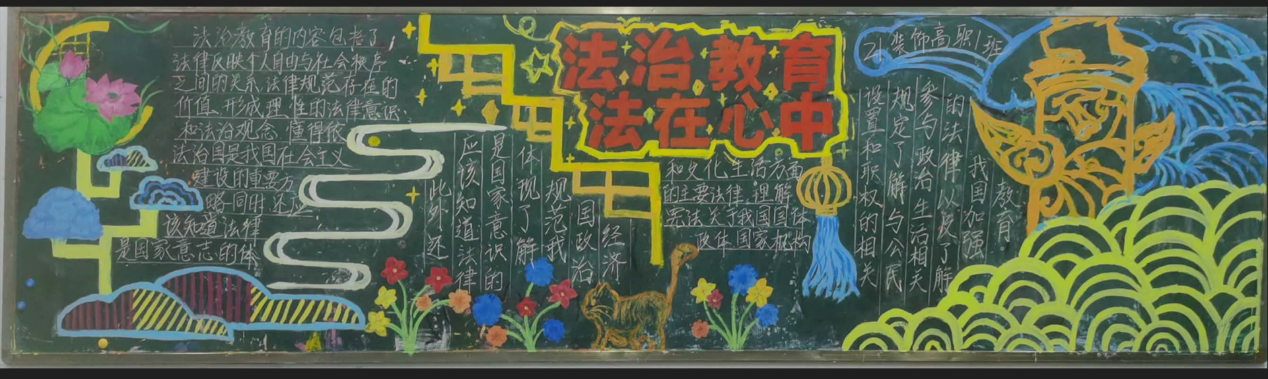 法治教育的内容包括了
法律反映个人自由与社会秩序
之间的关系法律规范存在的
价值、形成理性的法律意识
和法治观念、懂得依
法治国是我国社会主义
建设的重要方
略同时还还
该知道法律
是国家意志的体
此外还
应该知道法律
是国家意识的
体现了解
规范我
国政治
经济
法治教育
法在心中
和文化生活方面
的主要法律,理解
宪法关于我国国体
政体国家机构
设置和职权的相关
规定了解与公民
参与政治生活相关
的法律以及了解
我国加强
教育
21装饰高职1班